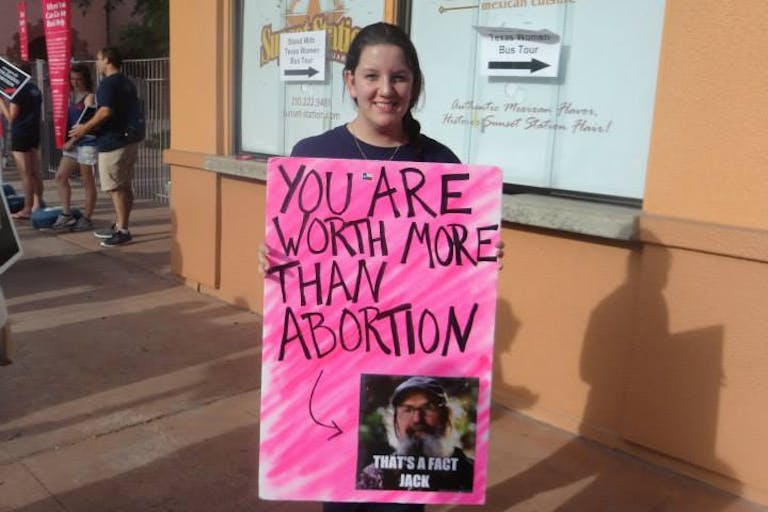 mexican cuisine
Sunset Station
Stand With
Texas Women
Bus Tour
Texas Women
Bus Tour
210.222.9481
sunset-station.com
Authentic Mexican Flavor,
Historic Sunset Station Flair!
YOU ARE
WORTH MORE
THAN
ABORTION
THAT'S A FACT
JACK